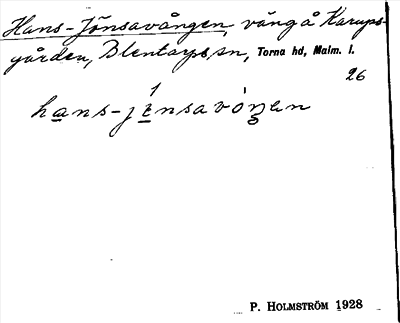 Hans-Jönsavången, vång å Karups-
gården, Blentarps sn, Torna hd, Malm. l.
26
hans-jensavóŋen
P. HOLMSTRÖM 1928